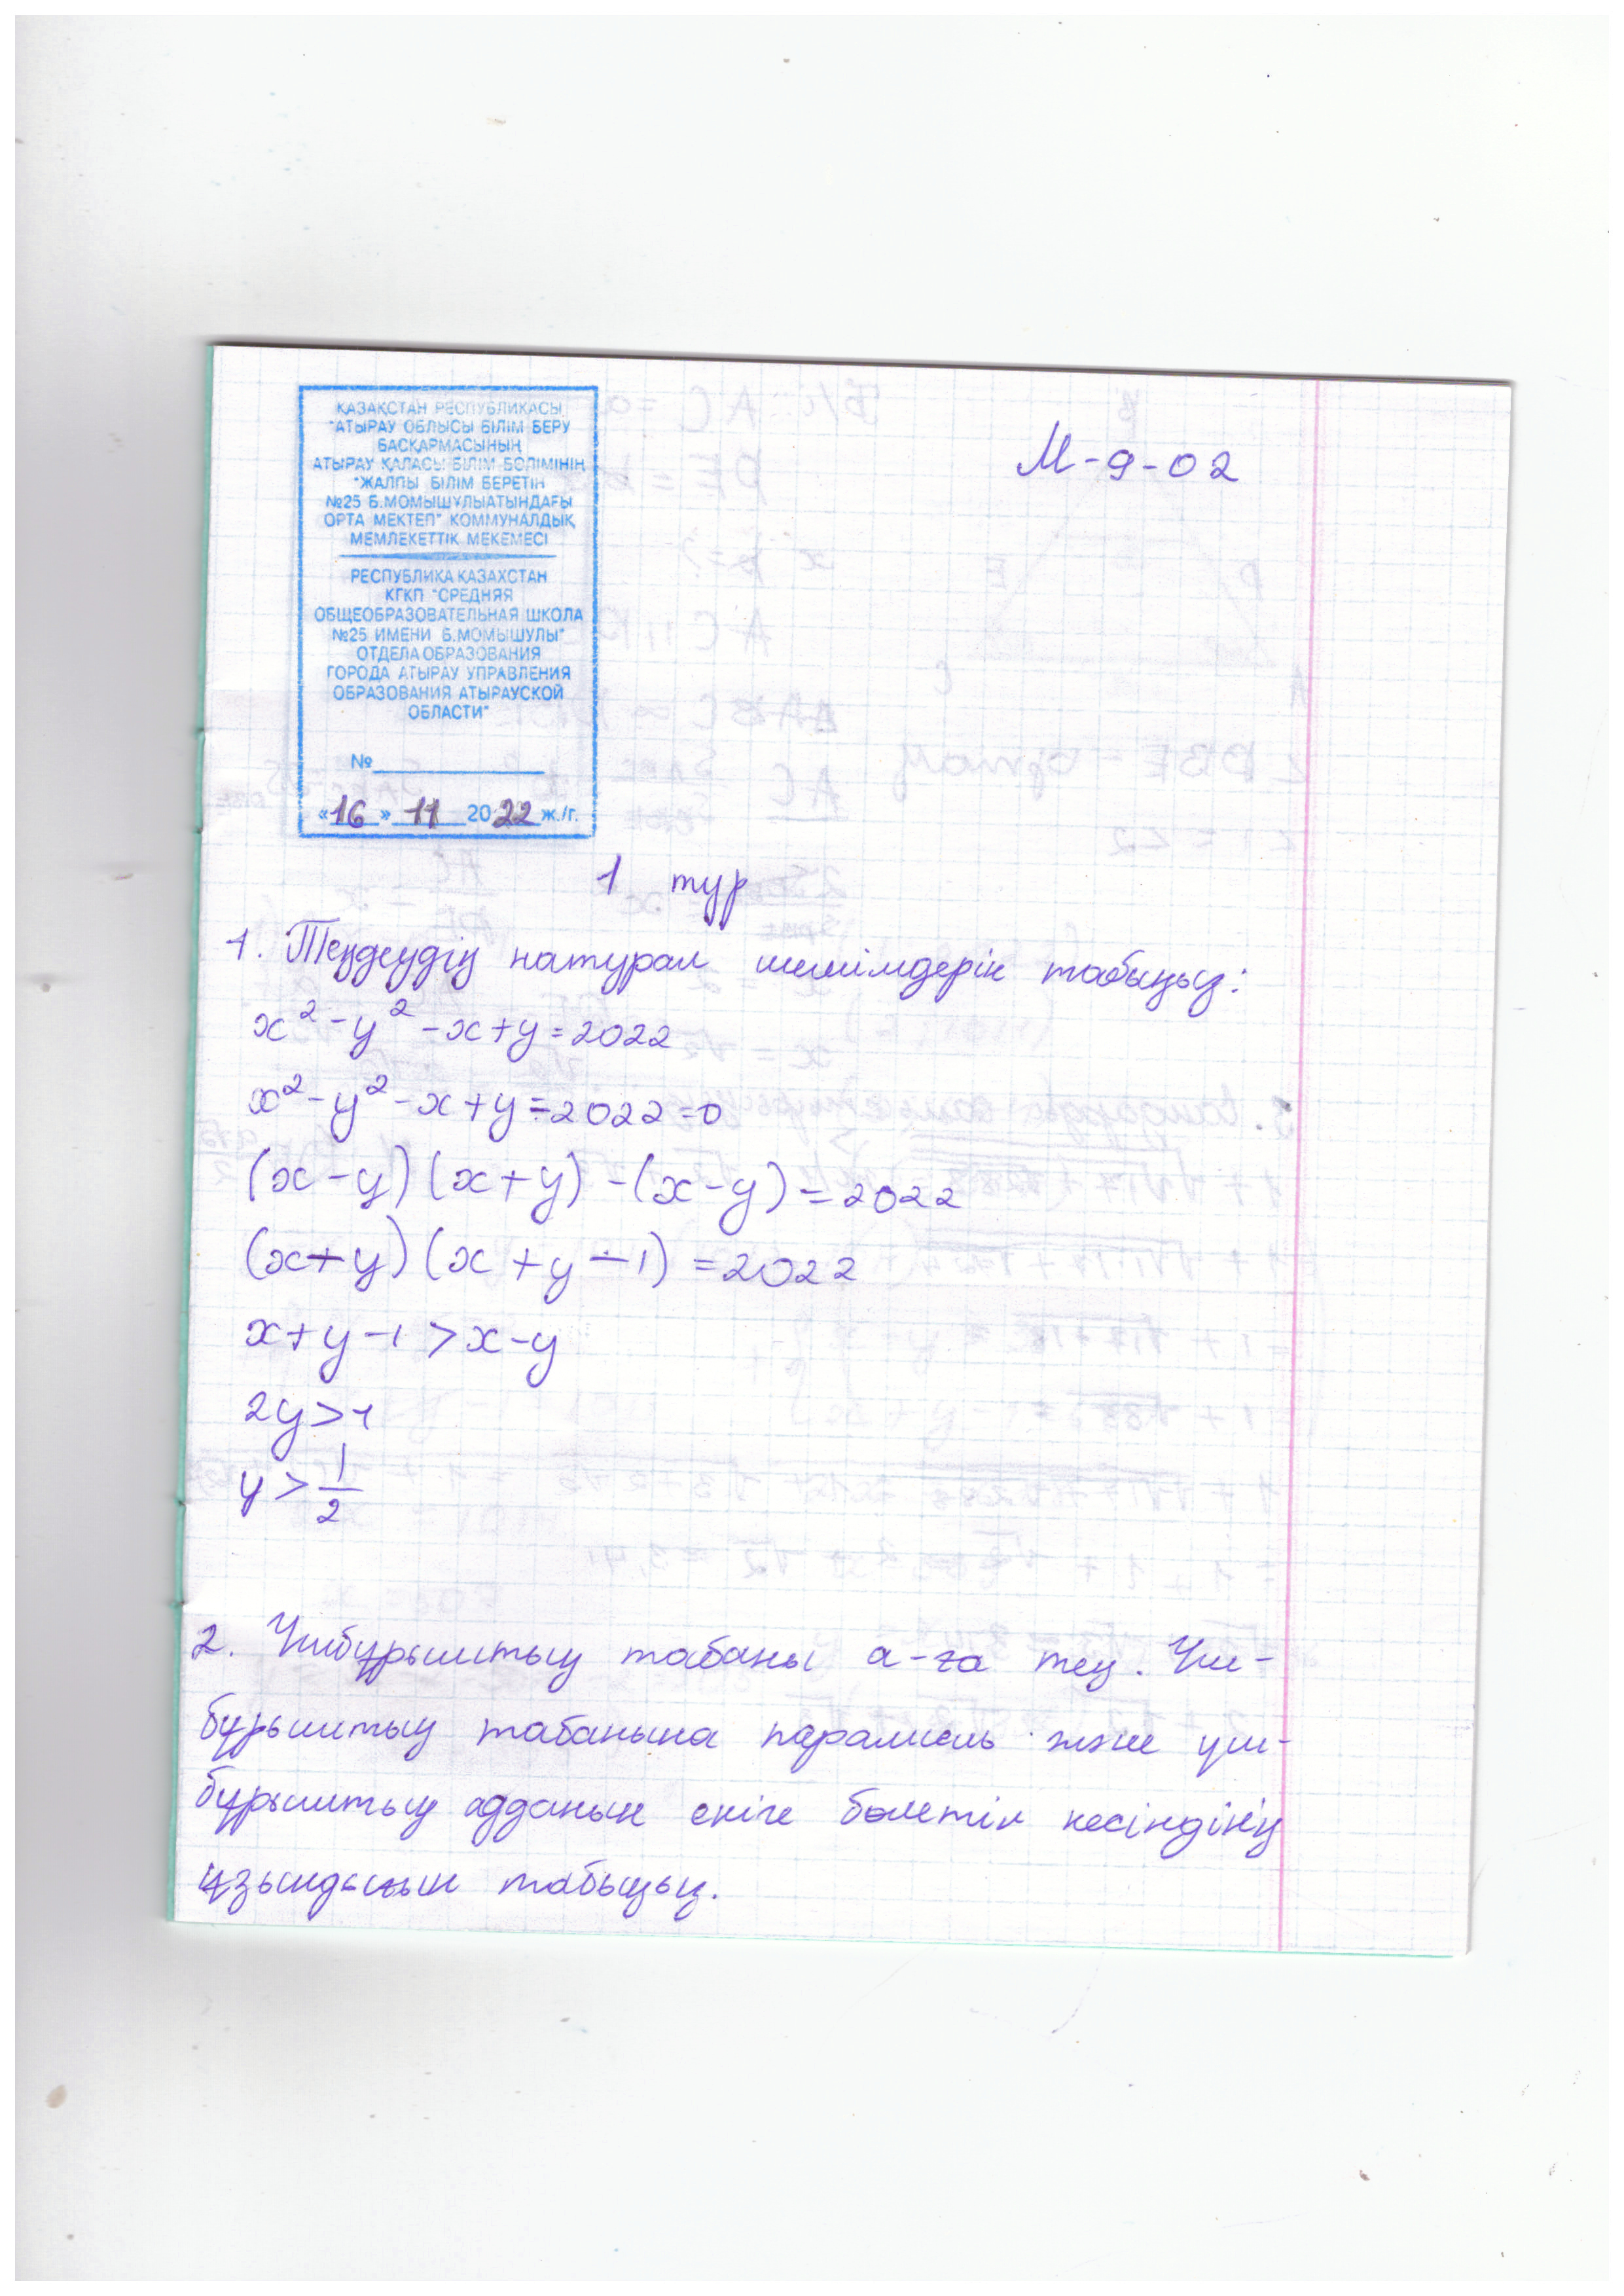 ҚАЗАҚСТАН РЕСПУБЛИКАСЫ
"АТЫРАУ ОБЛЫСЫ БІЛІМ БЕРУ
БАСҚАРМАСЫНЫҢ
АТЫРАУ ҚАЛАСЫ БІЛІМ БӨЛІМІНІҢ
"ЖАЛПЫ БІЛІМ БЕРЕТІН
№25 Б.МОМЫШҰЛЫАТЫНДАҒЫ
ОРТА МЕКТЕП" КОММУНАЛДЫҚ
МЕМЛЕКЕТТІК МЕКЕМЕСІ
РЕСПУБЛИКА КАЗАХСТАН
КГКП "СРЕДНЯЯ
ОБЩЕОБРАЗОВАТЕЛЬНАЯ ШКОЛА
№25 ИМЕНИ Б.МОМЫШУЛЫ"
ОТДЕЛА ОБРАЗОВАНИЯ
ГОРОДА АТЫРАУ УПРАВЛЕНИЯ
ОБРАЗОВАНИЯ АТЫРАУСКОЙ
ОБЛАСТИ"
№
«16» 11 2022 ж./г.
М-9-02
1 тур
1. Теңдеудің натурал шешімдерін табыңыз:
x² - y² - x + y = 2022
x² - y² - x + y = -2022 = 0
(x - y)(x + y) - (x - y) = 2022
(x + y)(x + y - 1) = 2022
x + y - 1 > x - y
2y > 1
y > 1/2
2. Үшбұрыштың табаны a-ға тең. Үш-
бұрыштың табанына параллель және үш-
бұрыштың ауданын екіге бөлетін кесіндінің
ұзындығын табыңыз.